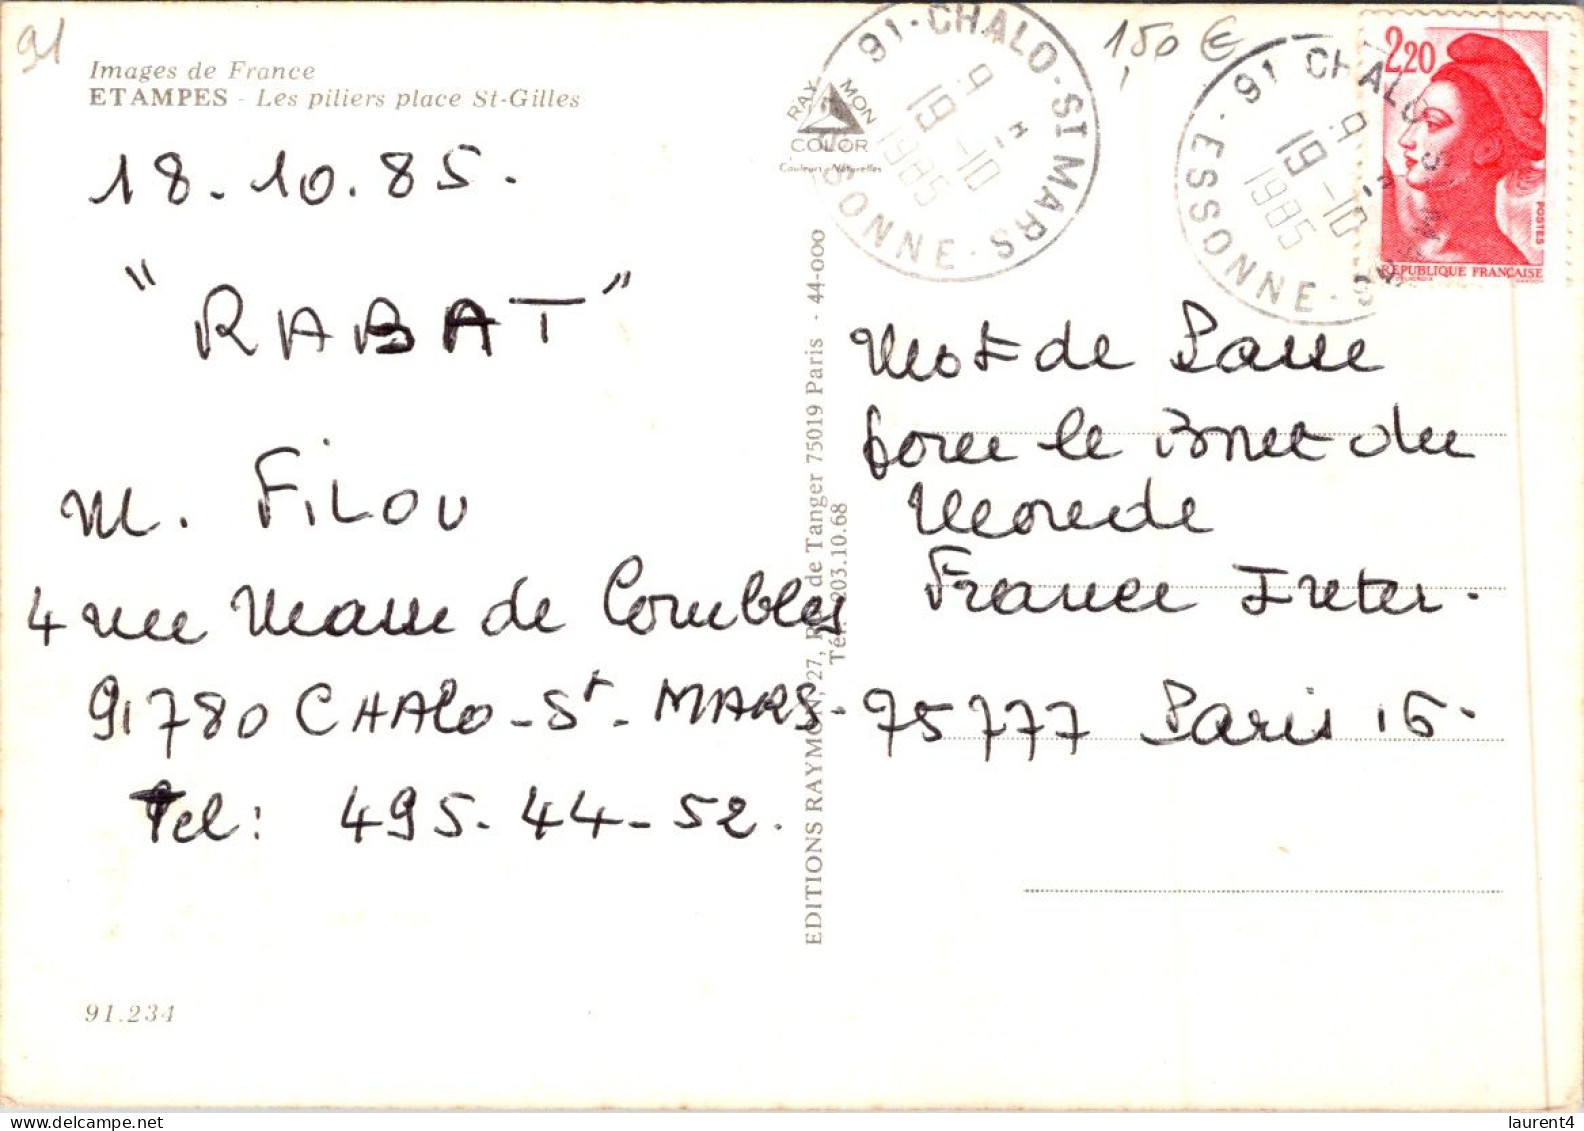 91
Images de France
ETAMPES - Les piliers place St-Gilles
18.10.85.
"RABAT"
M. FiLOU
4 rue Masse de Combles
91780 CHAlo-St-MARS-
Tel: 495-44-52.
91.234
RAYMON
COLOR
Couleurs Naturelles
EDITIONS RAYMON, 27, Rue de Tanger 75019 Paris - 44-000
Tél. 203.10.68
91-CHALO-ST MARS-S
ESSONNE
9 H
19-10
1985
1,50 €
91 CHALO ST MARS
ESSONNE-S
9 H
19-10
1985
2,20
POSTES
REPUBLIQUE FRANÇAISE
Mot de Passe
pour le Bout du
Monde
France Inter.
75777 Paris 16.
laurent4